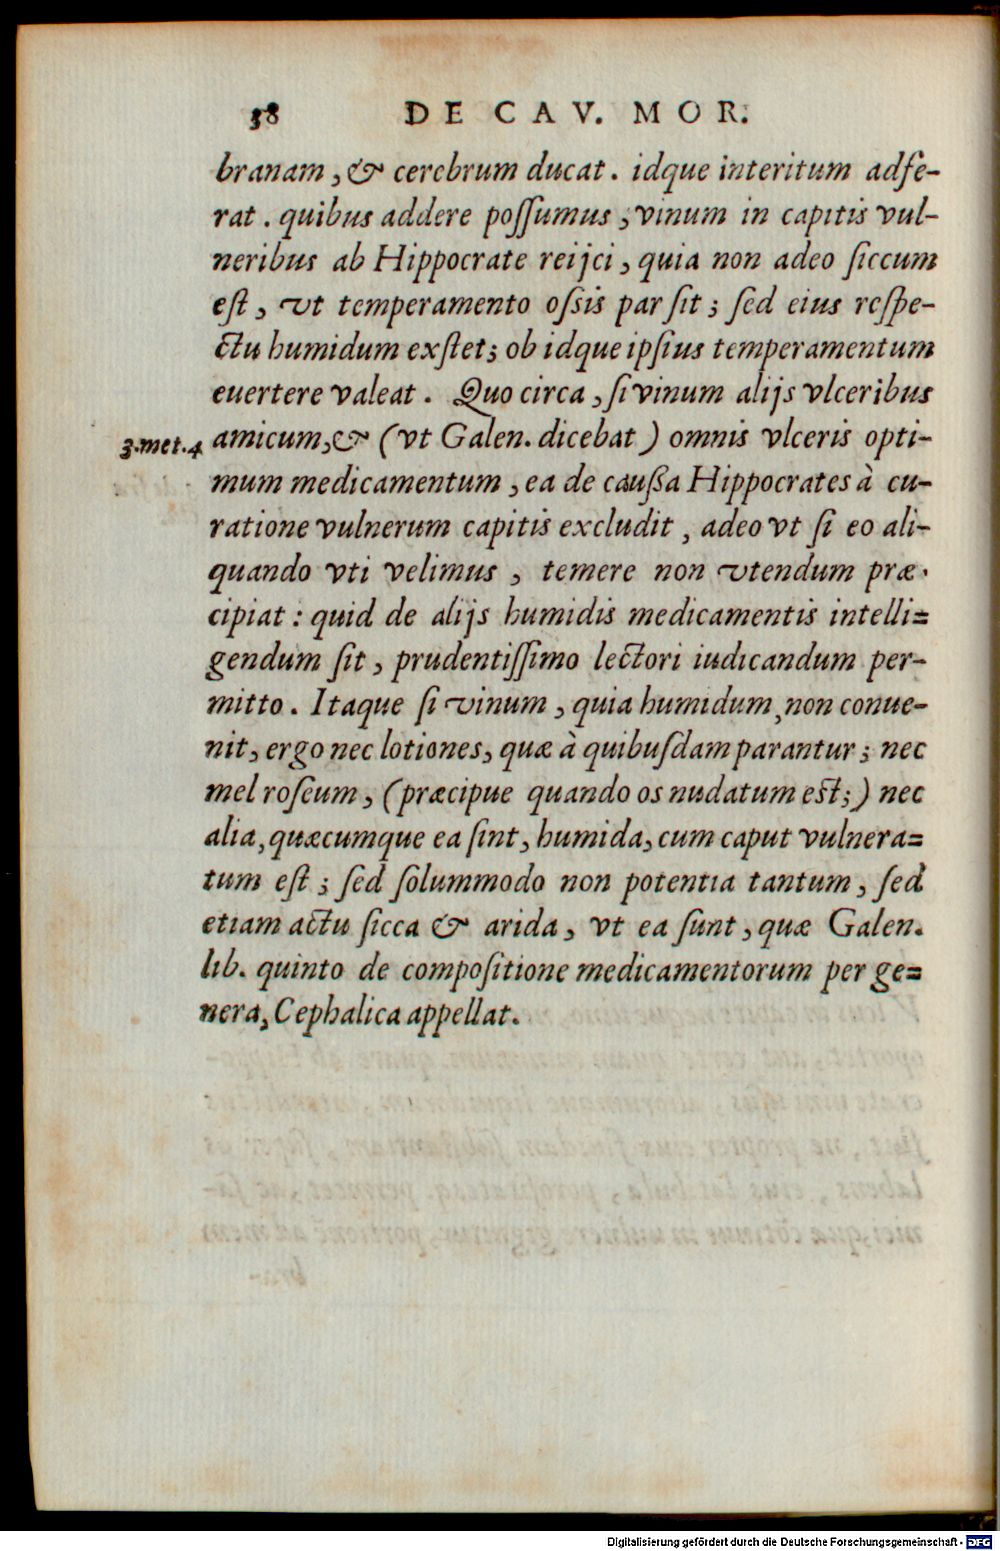 38 DE CAV. MOR.
branam, & cerebrum ducat. idque interitum adfe-
rat. quibus addere poſſumus, vinum in capitis vul-
neribus ab Hippocrate reijci, quia non adeo ſiccum
eſt, vt temperamento oſsis par ſit; ſed eius reſpe-
ctu humidum exſtet; ob idque ipſius temperamentum
euertere valeat. Quo circa, ſi vinum alijs vlceribus
3.met.4 amicum, & (vt Galen. dicebat) omnis vlceris opti-
mum medicamentum, ea de cauſſa Hippocrates à cu-
ratione vulnerum capitis excludit, adeo vt ſi eo ali-
quando vti velimus, temere non vtendum præ-
cipiat: quid de alijs humidis medicamentis intelli=
gendum ſit, prudentiſſimo lectori iudicandum per-
mitto. Itaque ſi vinum, quia humidum, non conue-
nit, ergo nec lotiones, quæ à quibuſdam parantur; nec
mel roſeum, (præcipue quando os nudatum eſt;) nec
alia, quæcumque ea ſint, humida, cum caput vulnera=
tum eſt; ſed ſolummodo non potentia tantum, ſed
etiam actu ſicca & arida, vt ea ſunt, quæ Galen.
lib. quinto de compoſitione medicamentorum per ge=
nera, Cephalica appellat.
Digitalisierung gefördert durch die Deutsche Forschungsgemeinschaft - DFG